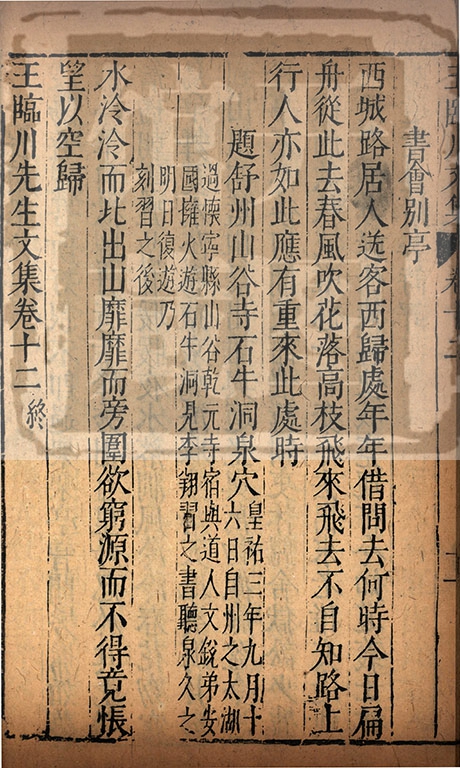 王臨川文集 卷十二
書會別亭
西城路居人送客西歸處年年借問去何時今日扁
舟從此去春風吹花落高枝飛來飛去不自知路上
行人亦如此應有重來此處時
題舒州山谷寺石牛洞泉穴
皇祐三年九月十
六日自州之太湖
過懷寧縣山谷乾元寺宿與道人文銳弟安
國擁火遊石牛洞見李翱習之書聽泉久之
明日復遊乃
刻習之後
水泠泠而北出山靡靡而旁圍欲窮源而不得竟悵
望以空歸
王臨川先生文集卷十二 終